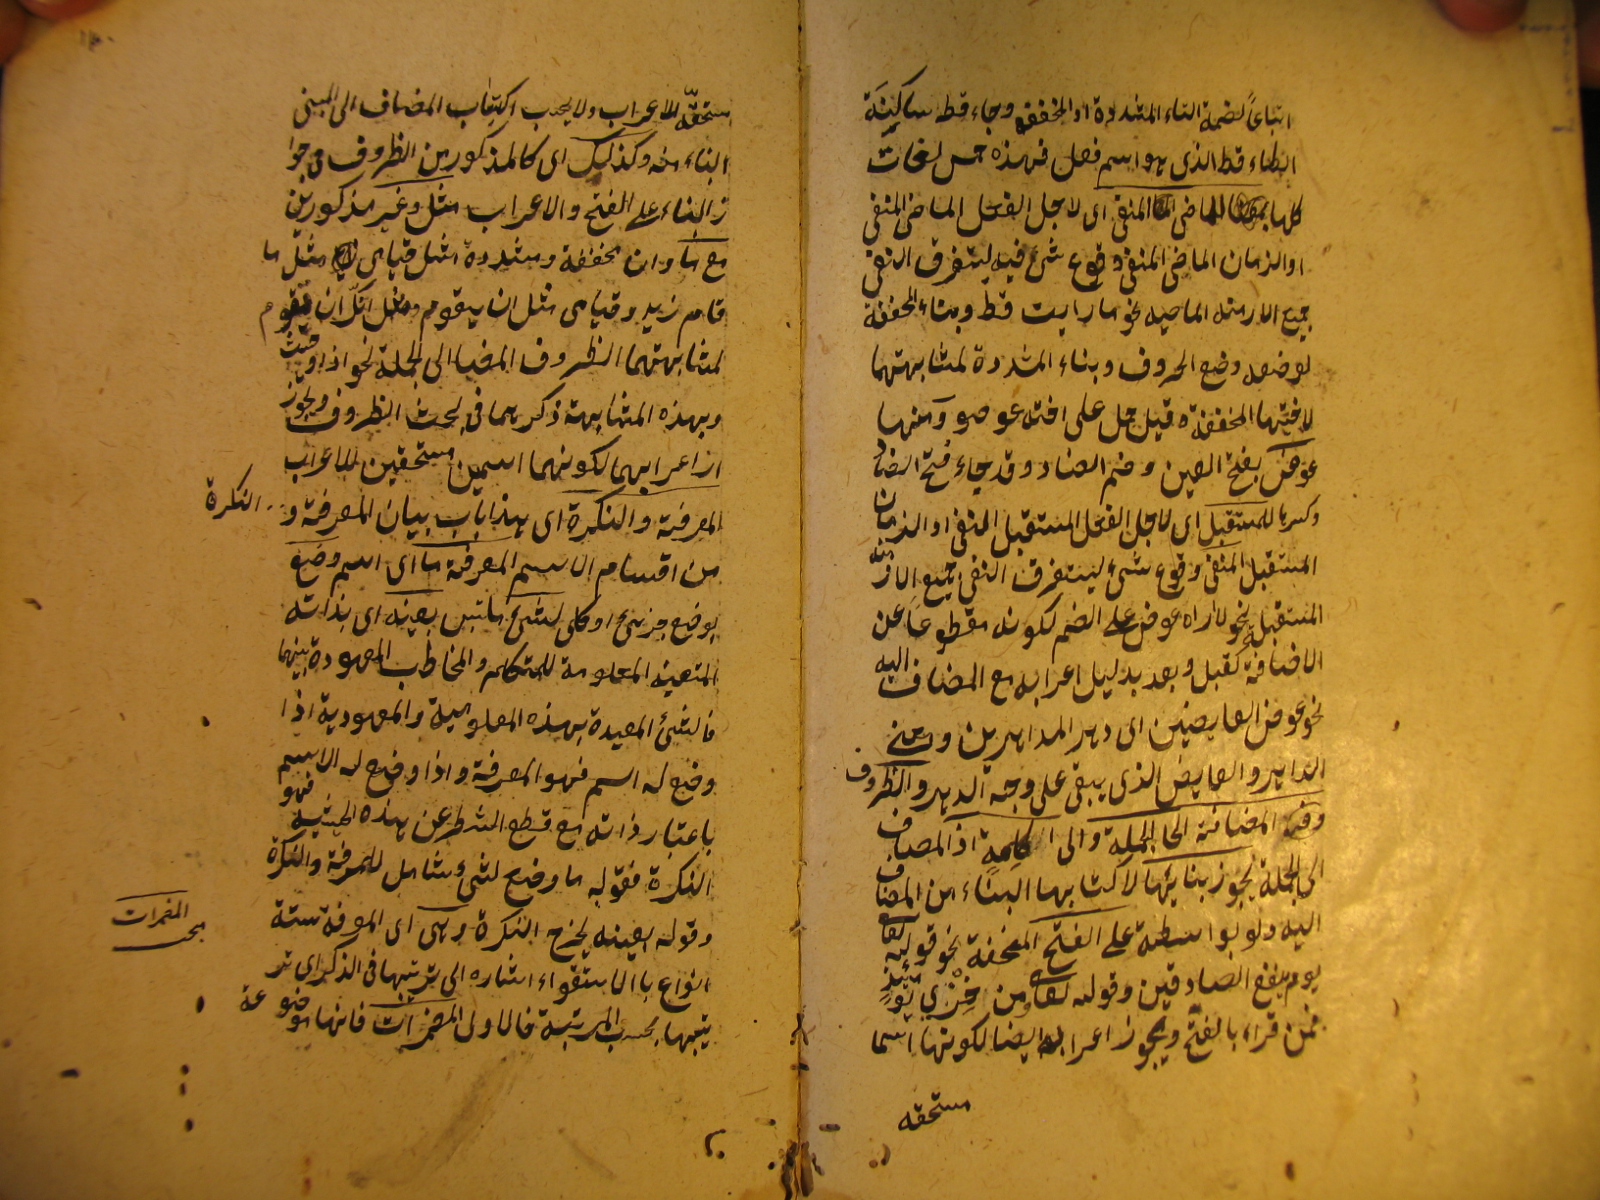 اتباعاً لضمة التاء المشددة او المخففة وجاء قط ساكنة
الطاء قط الذى هو اسم فعل فهذه خمس لغات
كلها للماضى المنفى اى لاجل الفعل الماضى المنفى
او الزمان الماضى المنفى وقوع شئ فيه ليستغرق النفى
جميع الازمنة الماضيه نحو ما رايت قط وبناء المخففة
لوضعه وضع الحروف وبناء المشددة لمشابهتها
لاختها المخففة وقيل حمل على اخته عوض وومنها
عوض بفتح العين وضم الضاد وقد جاء فتح الضاد
وكسرها للمستقبل اى لاجل الفعل المستقبل المنفى او الزمان
المستقبل المنفى وقوع شئ ليستغرق النفى جميع الازمنة
المستقبلة نحو لا اراه عوض على الضم لكونه مقطوعا عن
الاضافة كقبل وبعد بدليل اعرابه مع المضاف اليه
نحو عوض العايضين اى دهر الداهرين ومعنى
الداهر والعايض الذى يبقى على وجه الدهر والظروف
المضافة الى الجملة والى اذ المضاف
الى الجملة يجوز بنائها لاكتسابها البناء من المضاف
اليه ولو بواسطة على الفتح المخففة نحو قوله تعالى
يوم ينفع الصادقين وقوله تعالى ومن خزى يومئذ
فمن قراء بالفتح ويجوز اعرابه ايضا لكونها اسما
مستحقه
مستحقة للاعراب ولا يجب اكتساب المضاف الى المبنى
البناء منه وكذلك اى كالمذكور من الظروف فى جوا
ز البناء على الفتح والاعراب مثل وغير مذكورين
مع ما وان مخففة ومشددة مثل قيامى مثل ما
قام زيد وقيامى مثل ان يقوم ومثل انك ان تقوم
لمشابهتهما الظروف المضا الى الجملة نحو اذ او حيث
وبهذه المشابهة ذكرهما فى بحث الظروف ويجوز
ان اعرابهما لكونهما اسمين مستحقين للاعراب
المعرفة والنكرة اى هذا باب بيان المعرفة و النكرة
من اقسام الاسم المعرفة ما اى اسم وضع
بوضع جزئى او كلى لشئ ملتبس بعينه اى بذاته
المتعينه المعلومة للمتكلم والمخاطب المعهودة بينهما
فالشئ المعيدة بهذه المعلومية والمعهودية اذا
وضع له اسم فهو المعرفة واذا وضع له الاسم
باعتبار ذاته مع قطع النظر عن هذه الحيثية فهو
النكرة فقوله ما وضع لشئ شامل للمعرفة والنكرة
وقوله بعينه يخرج النكرة وهى اى المعرفة ستة
انواع باالاستقراء اشاره الى ترتيبها فى الذكر اى تر
تيبها بحسب المرتبة فالاولى المضمرات فانها موضوعة
المضمرات